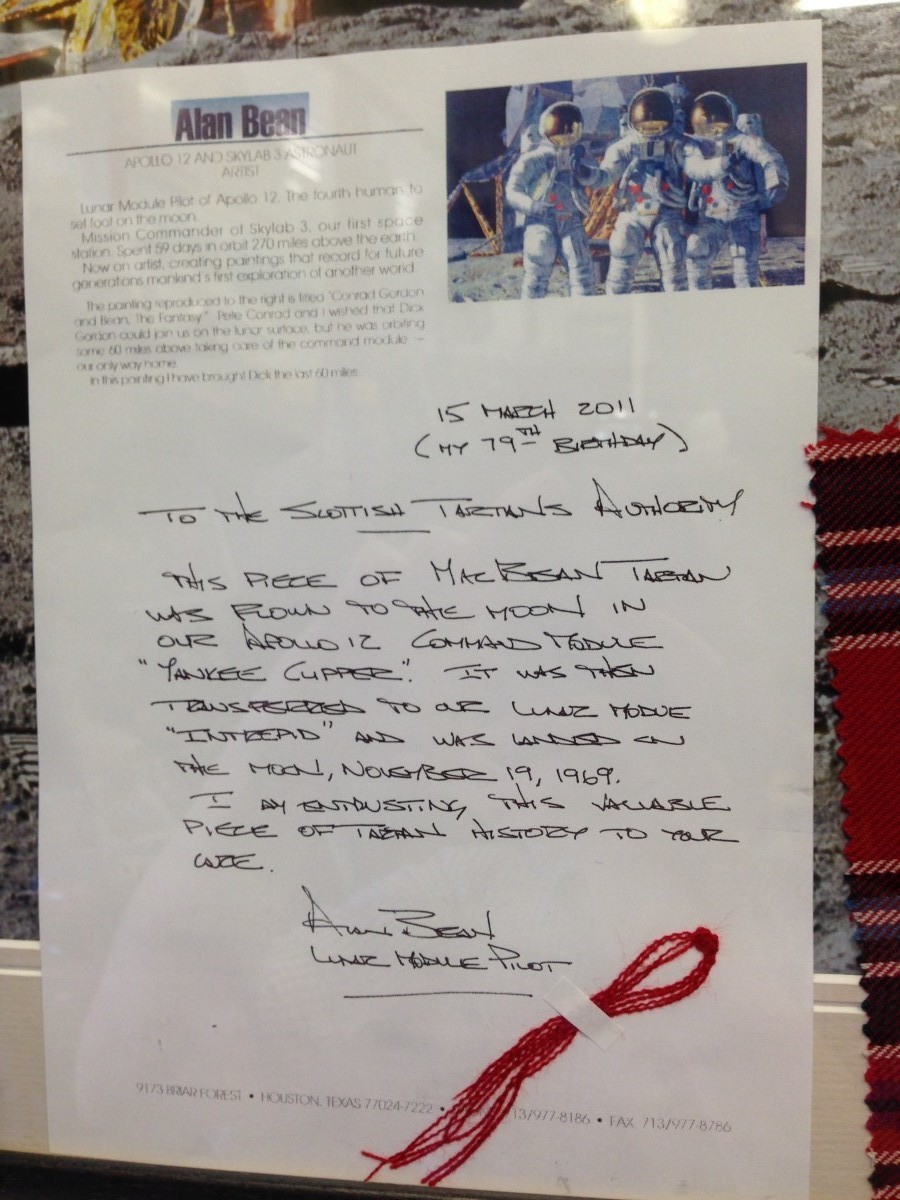 Alan Bean
APOLLO 12 AND SKYLAB 3 ASTRONAUT
ARTIST
Lunar Module Pilot of Apollo 12. The fourth human to
set foot on the moon.
Mission Commander of Skylab 3, our first space
station. Spent 59 days in orbit 270 miles above the earth.
Now an artist, creating paintings that record for future
generations mankind's first exploration of another world.
The painting reproduced to the right is titled "Conrad Gordon
and Bean, The Fantasy." Pete Conrad and I wished that Dick
Gordon could join us on the lunar surface, but he was orbiting
some 60 miles above taking care of the command module –
our only way home.
In this painting I have brought Dick the last 60 miles.
15 MARCH 2011
(MY 79TH BIRTHDAY)
TO THE SCOTTISH TARTANS AUTHORITY
THIS PIECE OF MACBEAN TARTAN
WAS FLOWN TO THE MOON IN
OUR APOLLO 12 COMMAND MODULE
"YANKEE CLIPPER". IT WAS THEN
TRANSFERRED TO OUR LUNAR MODULE
"INTREPID" AND WAS LANDED ON
THE MOON, NOVEMBER 19, 1969.
I AM ENTRUSTING THIS VALUABLE
PIECE OF TARTAN HISTORY TO YOUR
CARE.
ALAN BEAN
LUNAR MODULE PILOT
9173 BRIAR FOREST • HOUSTON, TEXAS 77024-7222 • 13/977-8186 • FAX 713/977-8786